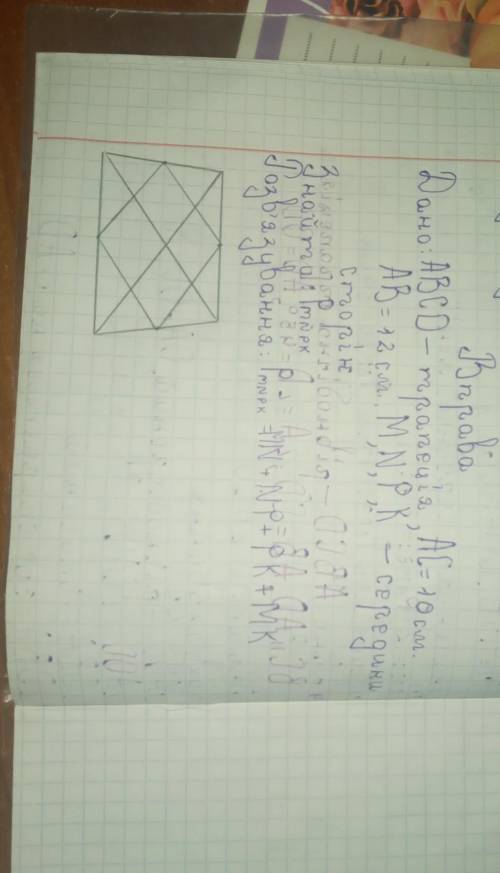 Вправа
Дано: ABCD – трапеція, AC = 10 см.
AB = 12 см. M, N, P, K – середини
сторін
Знайти: PMNPK
Розв'язування: PMNPK = MN + NP + PK + MK